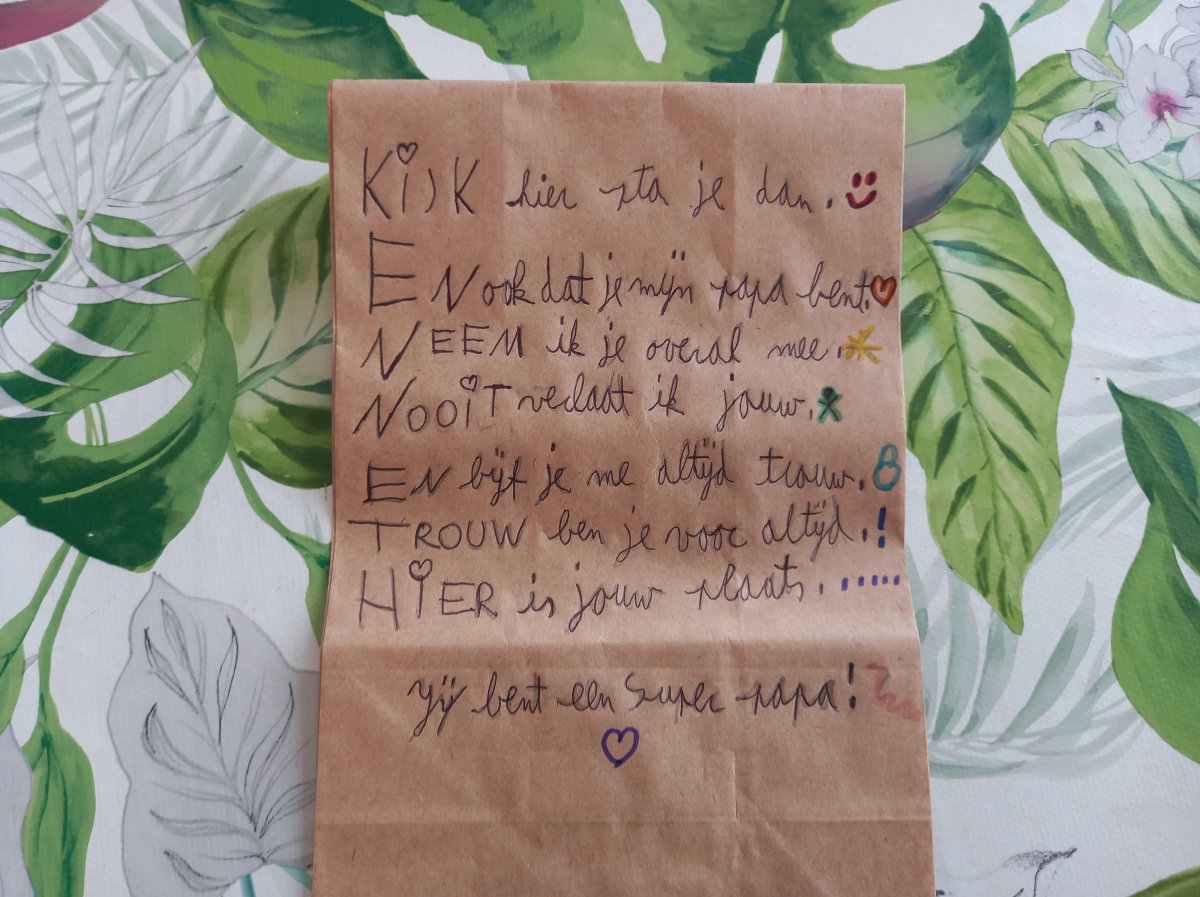 KIJK hier sta je dan.
EN ook dat je mijn papa bent.
NEEM ik je overal mee.
NOOIT verlaat ik jouw.
EN bijf je me altijd trouw.
TROUW ben je voor altijd.!
HIER is jouw plaats. .....
Yij bent een Super papa!